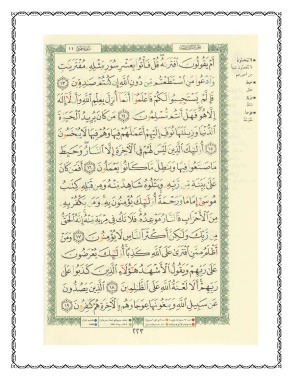 أَمْ يَقُولُونَ افْتَرَاهُ قُلْ فَأْتُوا بِعَشْرِ سُوَرٍ مِّثْلِهِ مُفْتَرَيَاتٍ
وَادْعُوا مَنِ اسْتَطَعْتُم مِّن دُونِ اللَّهِ إِن كُنتُمْ صَادِقِينَ ١٣
فَإِلَّمْ يَسْتَجِيبُوا لَكُمْ فَاعْلَمُوا أَنَّمَا أُنزِلَ بِعِلْمِ اللَّهِ وَأَن لَّا إِلَٰهَ
إِلَّا هُوَ فَهَلْ أَنتُم مُّسْلِمُونَ ١٤ مَن كَانَ يُرِيدُ الْحَيَاةَ
الدُّنْيَا وَزِينَتَهَا نُوَفِّ إِلَيْهِمْ أَعْمَالَهُمْ فِيهَا وَهُمْ فِيهَا لَا يُبْخَسُونَ
١٥ أُولَٰئِكَ الَّذِينَ لَيْسَ لَهُمْ فِي الْآخِرَةِ إِلَّا النَّارُ وَحَبِطَ
مَا صَنَعُوا فِيهَا وَبَاطِلٌ مَّا كَانُوا يَعْمَلُونَ ١٦ أَفَمَن كَانَ
عَلَىٰ بَيِّنَةٍ مِّن رَّبِّهِ وَيَتْلُوهُ شَاهِدٌ مِّنْهُ وَمِن قَبْلِهِ كِتَابُ
مُوسَىٰ إِمَامًا وَرَحْمَةً أُولَٰئِكَ يُؤْمِنُونَ بِهِ وَمَن يَكْفُرْ بِهِ
مِنَ الْأَحْزَابِ فَالنَّارُ مَوْعِدُهُ فَلَا تَكُ فِي مِرْيَةٍ مِّنْهُ إِنَّهُ الْحَقُّ
مِن رَّبِّكَ وَلَٰكِنَّ أَكْثَرَ النَّاسِ لَا يُؤْمِنُونَ ١٧ وَمَنْ
أَظْلَمُ مِمَّنِ افْتَرَىٰ عَلَى اللَّهِ كَذِبًا أُولَٰئِكَ يُعْرَضُونَ
عَلَىٰ رَبِّهِمْ وَيَقُولُ الْأَشْهَادُ هَٰؤُلَاءِ الَّذِينَ كَذَبُوا عَلَىٰ
رَبِّهِمْ أَلَا لَعْنَةُ اللَّهِ عَلَى الظَّالِمِينَ ١٨ الَّذِينَ يَصُدُّونَ
عَن سَبِيلِ اللَّهِ وَيَبْغُونَهَا عِوَجًا وَهُم بِالْآخِرَةِ هُمْ كَافِرُونَ ١٩
٢٢٣